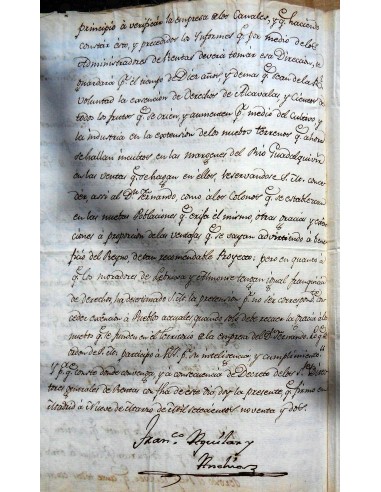 principio à verificar la empresa de los Canales, y q.e haciendo
constar esto, y precedidos los Informes q.e por medio de los
Administradores de Rentas deverá tomar esa Direccion, se
guardará p.r el tiempo de Diez años y demas q.e sean de la R.l
voluntad la exencion de derechos de Alcavalas y Cientos de
todos los frutos q.e se crien, y aumenten p.r medio del Cultivo, y
la industria en la extension de los nuebos terrenos q.e ahora
se hallan incultos en las margenes del Rio Guadalquivir
en las ventas q.e se hagan en ellos, reservandose S. M. conce-
der, asi al D.n Fernando, como a los Colonos q.e se establezcan
en las nuebas Poblaciones q.e erija el mismo, otras gracias y exen-
ciones à proporcion de las ventajas q.e se vayan advirtiendo à bene-
ficio del Reyno de tan recomendable Proyecto; pero en quanto a
q.e los moradores de Lebrija y tengan igual franquicia
de derechos, ha determinado S. M. la prevenir p.r no ser correspond. con-
ceder exencion à Pueblos actuales, quando solo debe recaer la gracia à los
nuebos q.e se funden en el territorio de la empresa del D.n Fernando. De or-
den de S. M. lo participo à V.S. p.a su inteligencia y cumplimiento
Y p.a q.e conste donde convenga, y à consecuencia de Decreto de los S.res Direc-
tores generales de Rentas con fha de este dia, doy la presente, q.e firmo en
Madrid à Nueve de Marzo de mil setecientos noventa y dos.
Fran.co Aguilar y